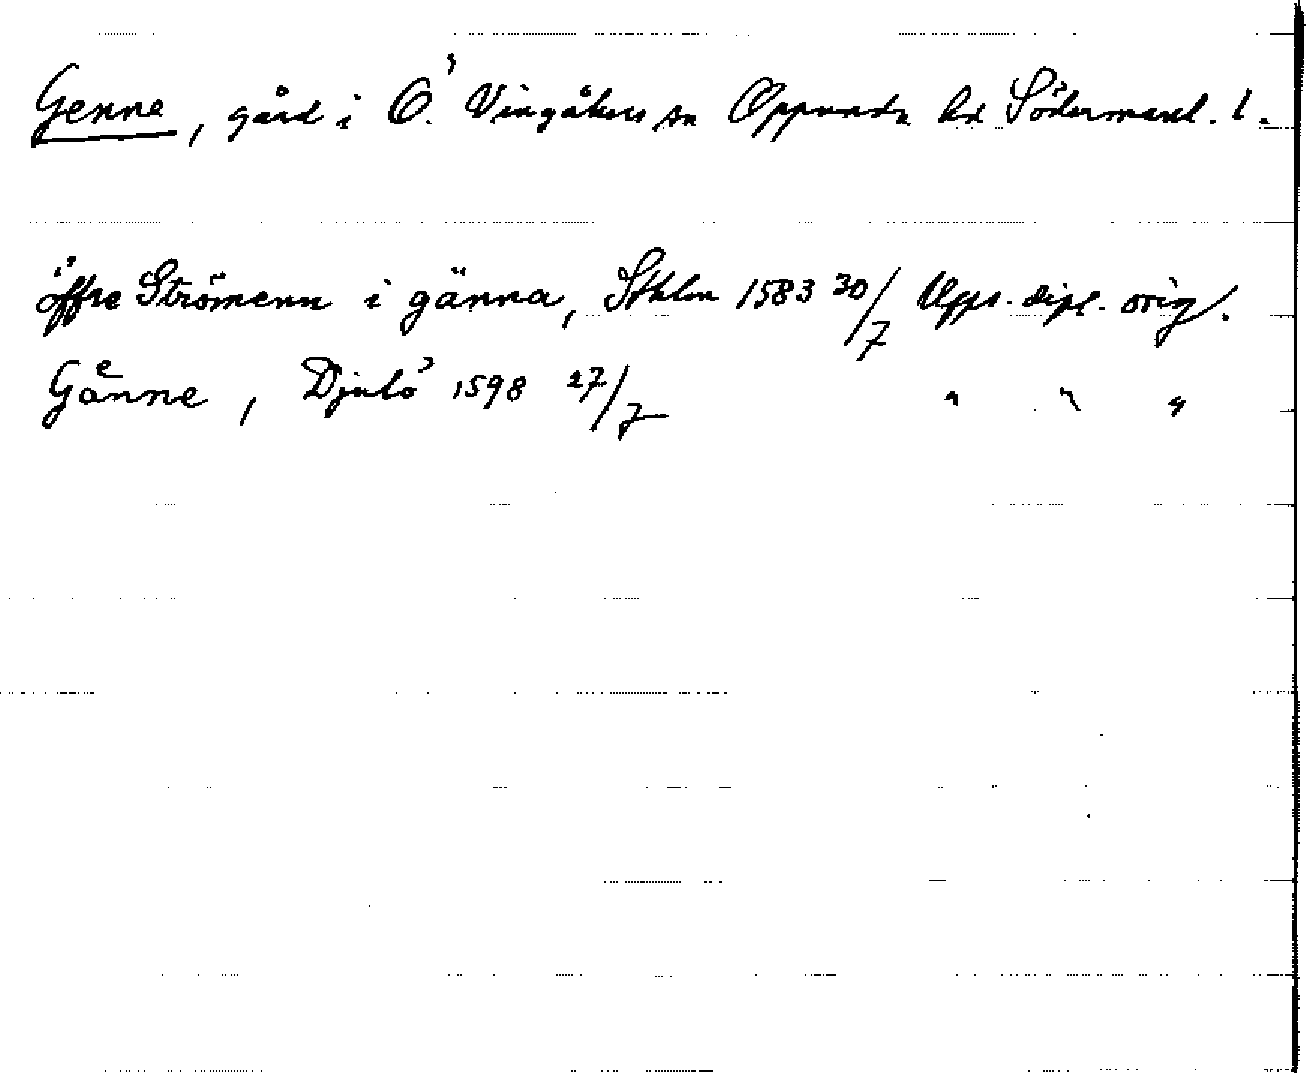 Genne, gård i Ö. Vingåkers sn Oppunda hd Södermanl. l.
öffre Strömenn i gänna, Sthlm 1583 30/7 Upps. dipl. orig.
Gaͤnne, Djulö 1598 27/7 " " "